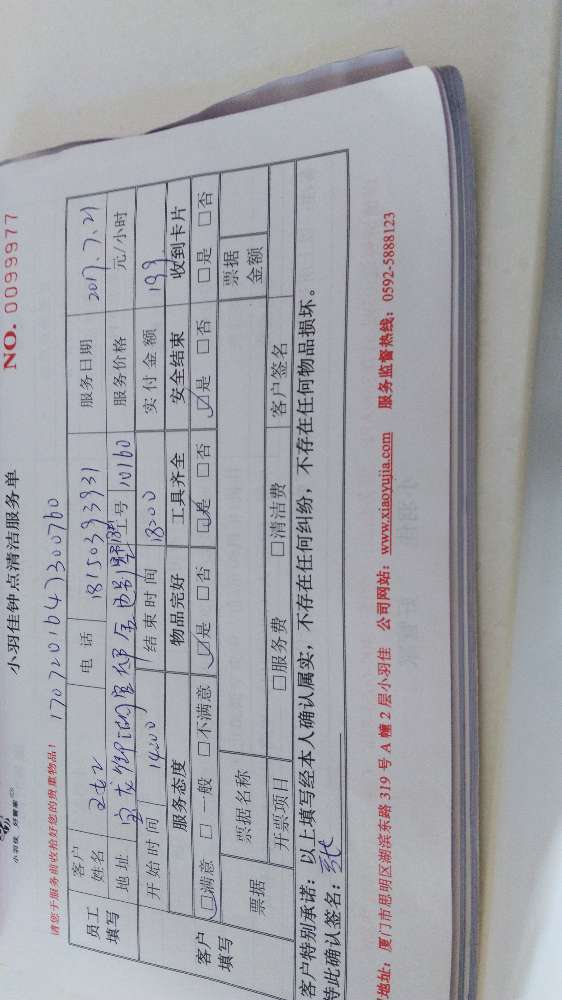 小羽佳 好管家
小羽佳钟点清洁服务单
NO. 0099977
请您于服务前收拾好您的贵重物品!
1707201647300760
员工填写 客户姓名 电话 18150393931 服务日期 2017.7.21
地址 工号 10160 服务价格 元/小时
开始时间 14:00 结束时间 18:00 实付金额 199
客户填写 服务态度 物品完好 工具齐全 安全结束 收到卡片
☑满意 □一般 □不满意 ☑是 □否 ☑是 □否 ☑是 □否 □是 □否
票据 票据名称 票据金额
开票项目 □服务费 □清洁费 客户签名
客户特别承诺:以上填写经本人确认属实,不存在任何纠纷,不存在任何物品损坏。
特此确认签名:
地址:厦门市思明区湖滨东路 319 号 A 幢 2 层小羽佳 公司网站:www.xiaoyujia.com 服务监督热线:0592-5888123